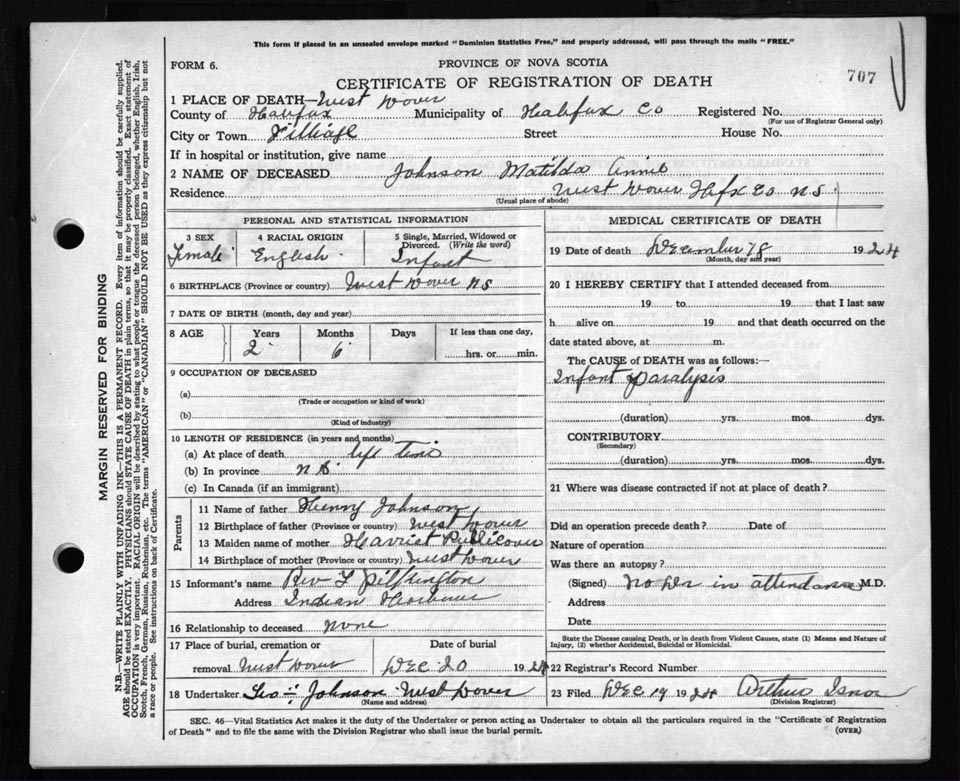 This form if placed in an unsealed envelope marked "Dominion Statistics Free," and properly addressed, will pass through the mails "FREE."
FORM 6.
PROVINCE OF NOVA SCOTIA
CERTIFICATE OF REGISTRATION OF DEATH
707
1 PLACE OF DEATH—West Dover
County of Halifax Municipality of Halifax Co Registered No.
(For use of Registrar General only)
City or Town Village Street House No.
If in hospital or institution, give name
2 NAME OF DECEASED Johnson Matilda Annie
Residence West Dover Hfx Co NS
(Usual place of abode)
PERSONAL AND STATISTICAL INFORMATION
3 SEX 4 RACIAL ORIGIN 5 Single, Married, Widowed or Divorced. (Write the word)
Female English Infant
6 BIRTHPLACE (Province or country) West Dover NS
7 DATE OF BIRTH (month, day and year)
8 AGE Years Months Days If less than one day,
2 6 hrs. or min.
9 OCCUPATION OF DECEASED
(a)
(Trade or occupation or kind of work)
(b)
(Kind of industry)
10 LENGTH OF RESIDENCE (in years and months)
(a) At place of death life time
(b) In province N S
(c) In Canada (if an immigrant)
Parents
11 Name of father Henry Johnson
12 Birthplace of father (Province or country) West Dover
13 Maiden name of mother Harriet Publicover
14 Birthplace of mother (Province or country) West Dover
15 Informant's name Rev T Pilkington
Address Indian Harbour
16 Relationship to deceased none
17 Place of burial, cremation or Date of burial
removal West Dover Dec 20 1924
18 Undertaker Johnson West Dover
(Name and address)
MEDICAL CERTIFICATE OF DEATH
19 Date of death December 18 1924
(Month, day and year)
20 I HEREBY CERTIFY that I attended deceased from
19 to 19 that I last saw
h alive on 19 and that death occurred on the
date stated above, at m.
The CAUSE of DEATH was as follows:—
Infant paralysis
(duration) yrs. mos. dys.
CONTRIBUTORY
(Secondary)
(duration) yrs. mos. dys.
21 Where was disease contracted if not at place of death?
Did an operation precede death? Date of
Nature of operation
Was there an autopsy?
(Signed) No Dr in attendance M.D.
Address
Date
State the Disease causing Death, or in death from Violent Causes, state (1) Means and Nature of
Injury, (2) whether Accidental, Suicidal or Homicidal.
22 Registrar's Record Number
23 Filed Dec 19 1924 Arthur Isnor
(Division Registrar)
SEC. 46—Vital Statistics Act makes it the duty of the Undertaker or person acting as Undertaker to obtain all the particulars required in the "Certificate of Registration
of Death" and to file the same with the Division Registrar who shall issue the burial permit. (OVER)
MARGIN RESERVED FOR BINDING
N.B.—WRITE PLAINLY WITH UNFADING INK—THIS IS A PERMANENT RECORD. Every item of information should be carefully supplied.
AGE should be stated EXACTLY. PHYSICIANS should STATE CAUSE OF DEATH in plain terms, so that it may be properly classified. Exact statement of
OCCUPATION is very important. RACIAL ORIGIN will be described by stating to what people or tongue the deceased person belonged, whether English, Irish,
Scotch, French, German, Russian, Ruthenian, etc. The terms "AMERICAN" or "CANADIAN" SHOULD NOT BE USED as they express citizenship but not
a race or people. See instructions on back of Certificate.